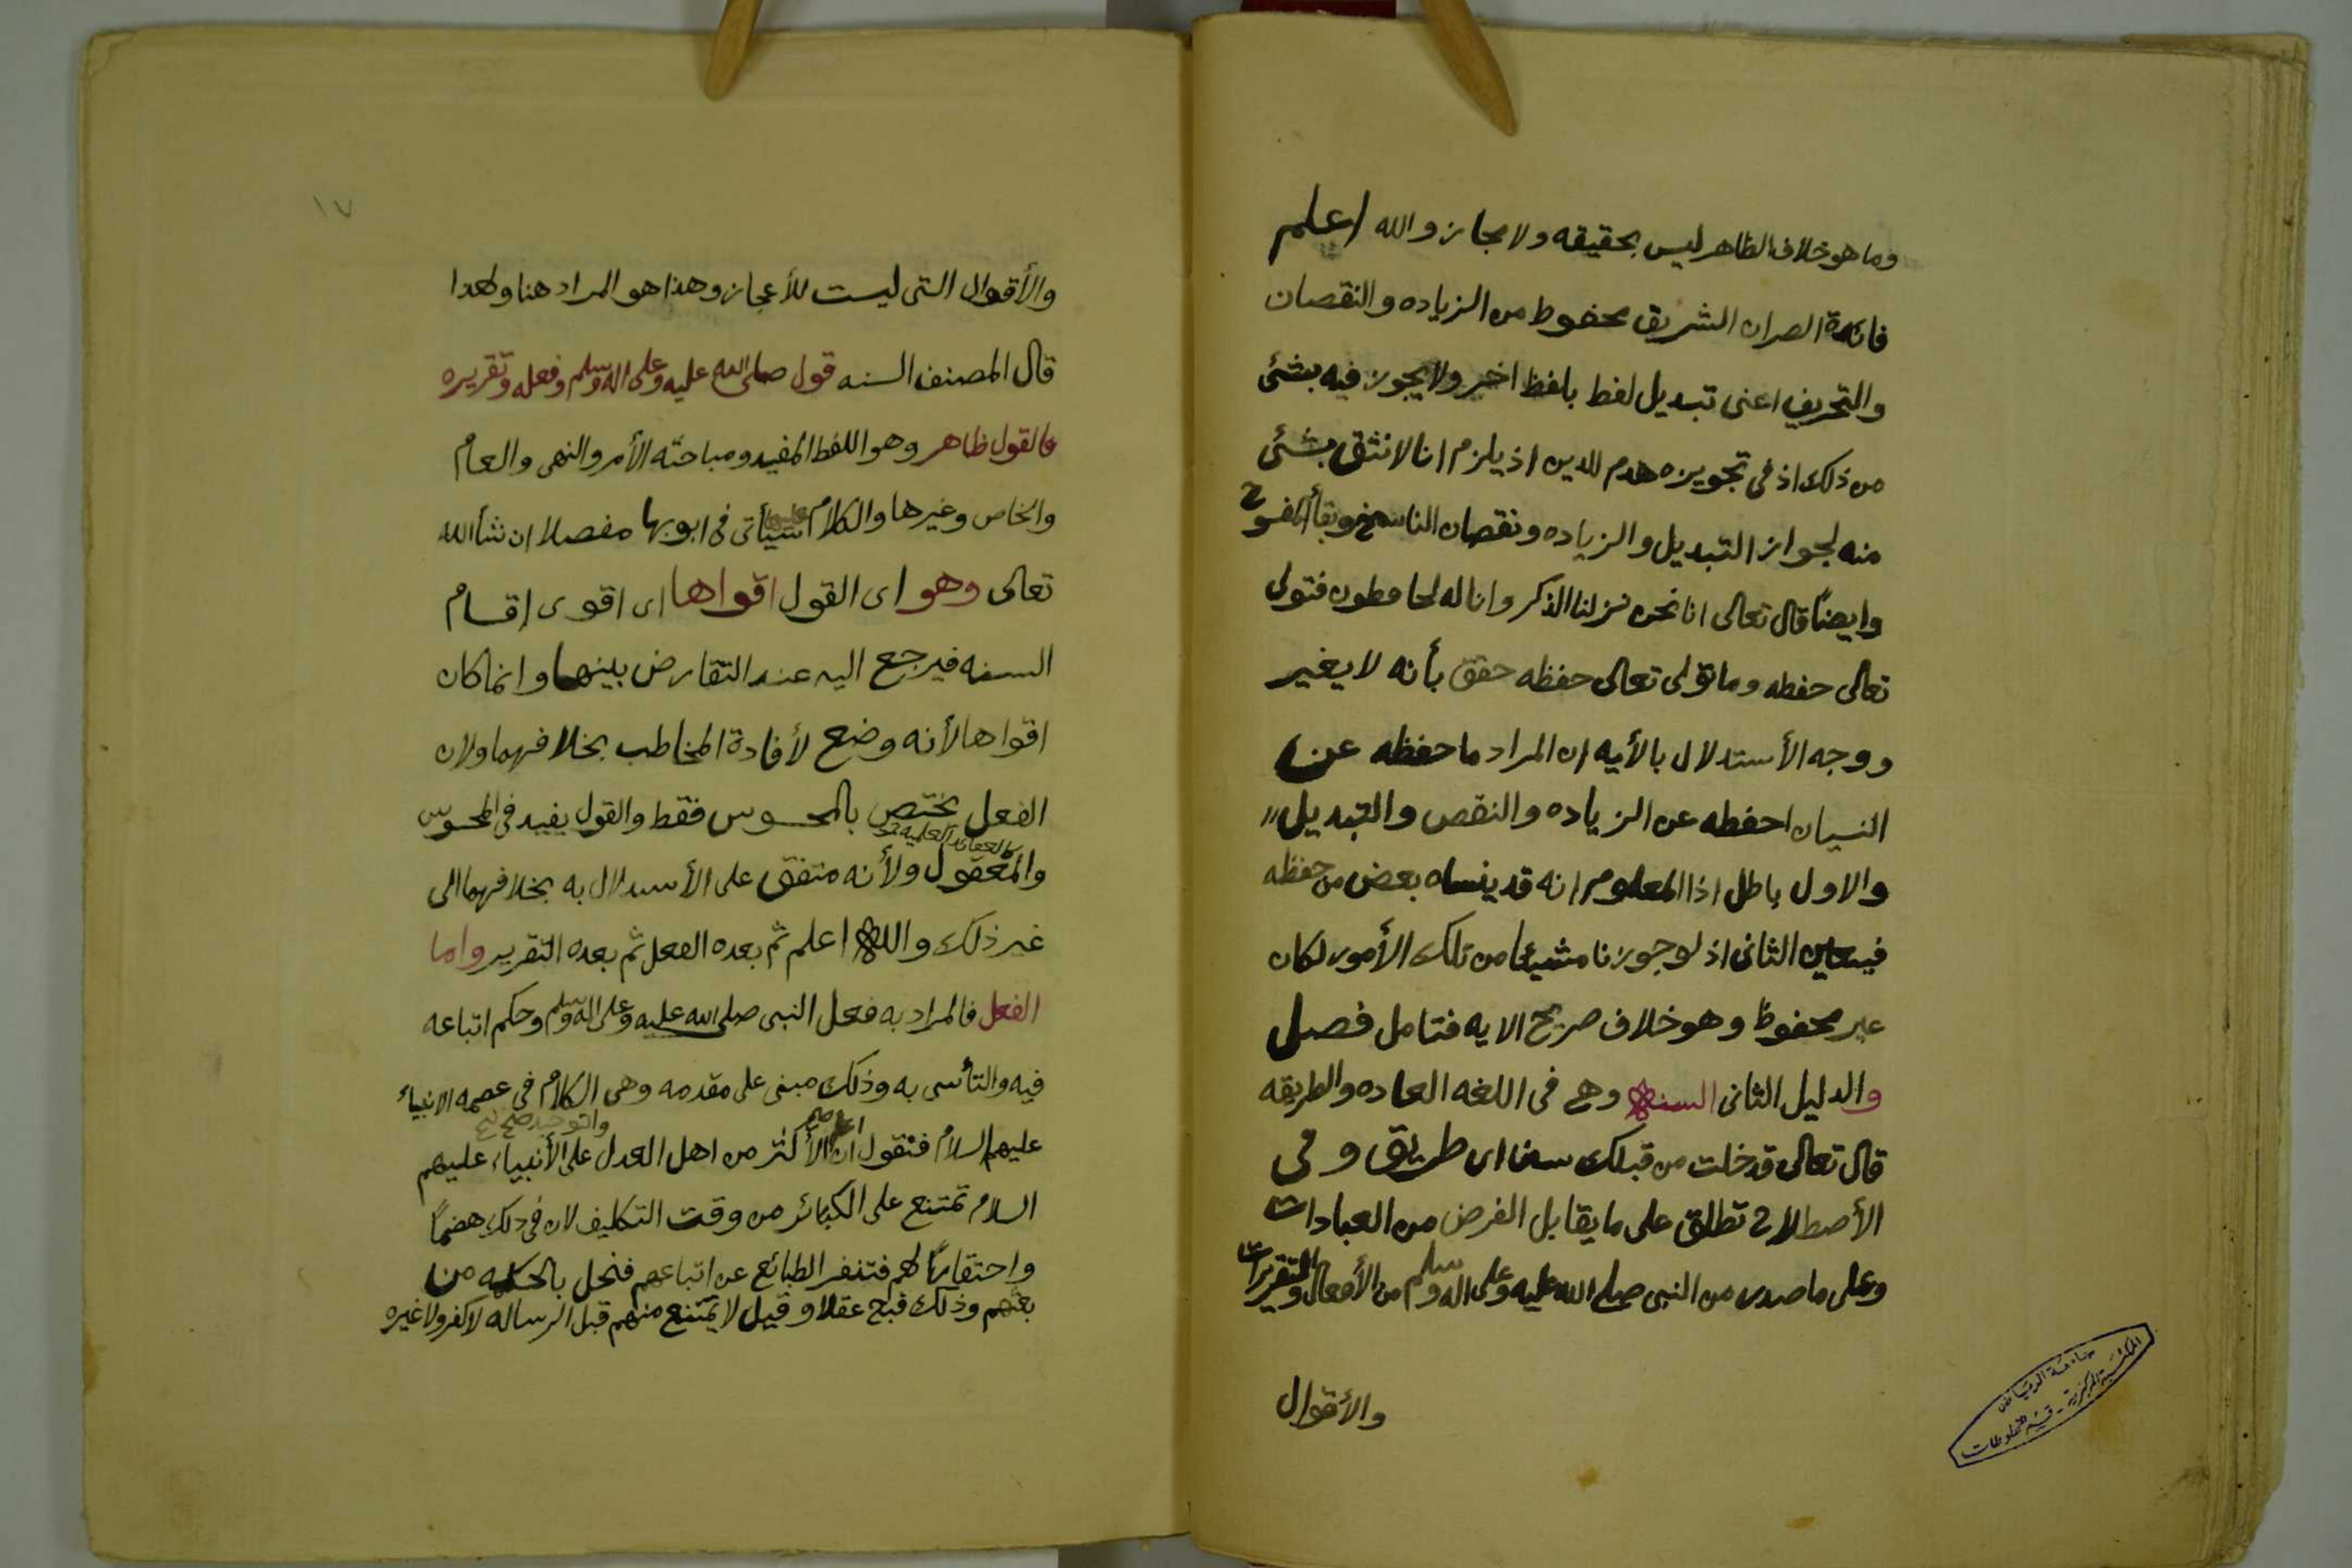 وما هو خلاف الظاهر ليس بحقيقه ولا مجاز والله اعلم
فائدة الصران الشريف محفوظ من الزياده والنقصان
والتحريف اعنى تبديل لفظ بلفظ اخر ولا يجوز فيه بشئ
من ذلك اذ فى تجويزه هدم للدين اذ يلزم انا لا نثق بشئ
منه لجواز التبديل والزياده ونقصان الناسخ وبقأ
وايضاً قال تعالى انا نحن نزلنا الذكر وانا له لحافطون فتولى
تعالى حفظه وما تولى تعالى حفظه حقق بأنه لا يغير
ووجه الأستدلال بالأيه ان المراد ما حفظه عن
النسيان احفظه عن الزياده والنقص والتبديل
والاول باطل اذا المعلوم انه قد ينساه بعض من حفظه
الثانى اذ لوجوزنا شيئا من تلك الأمور لكان
غير محفوظ وهو خلاف صريح الايه فتامل فصل
والدليل الثانى السنه وهى فى اللغه العاده والطريقه
قال تعالى قد خلت من قبلك سنن اى طريق وفى
الأصطلاح تطلق على ما يقابل الفرض من العبادات
وعلى ما صدر من النبى صلى الله عليه وعلى اله وسلم من الأفعال والتقريرات
والأقوال
جامعة الرياض
المكتبة المركزية - قسم المخطوطات
١٧
والأقوال التى ليست للأعجاز وهذا هو المراد هنا ولهذا
قال المصنف السنه قول صلى الله عليه وعلى اله وسلم وفعله وتقريره
فالقول ظاهر وهو اللفظ المفيد ومباحثه الأمر والنهى والعام
والخاص وغيرها والكلام عليها سيأتى فى ابوبها مفصلا ان شأ الله
تعالى وهو اى القول اقواها اى اقوى اقسام
السنه فيرجع اليه عند التعارض بينها وانما كان
اقواها لأنه وضع لأفادة المخاطب بخلافهما ولان
الفعل يختص بالمحسوس فقط والقول يفيد فى المحسوس
كالعقائد العلميه
والمعقول ولأنه متفق على الأستدلال به بخلافهما الى
غير ذلك والله اعلم ثم بعده الفعل ثم بعده التقرير واما
الفعل فالمراد به فعل النبى صلى الله عليه وعلى اله وسلم وحكم اتباعه
فيه والتأسى به وذلك مبنى على مقدمه وهى الكلام فى عصمه الانبياء
والتوحيد صح
عليهم السلام فنقول ان الأكثر من اهل العدل على الأنبياء عليهم
السلام تمتنع على الكبائر من وقت التكليف لان فى ذلك هضماً
واحتقاراً لهم فتنفر الطبائع عن اتباعهم فنخل بالحكمه من
بعثهم وذلك قبح عقلا وقيل لا يمتنع منهم قبل الرساله لا كفر ولا غيره